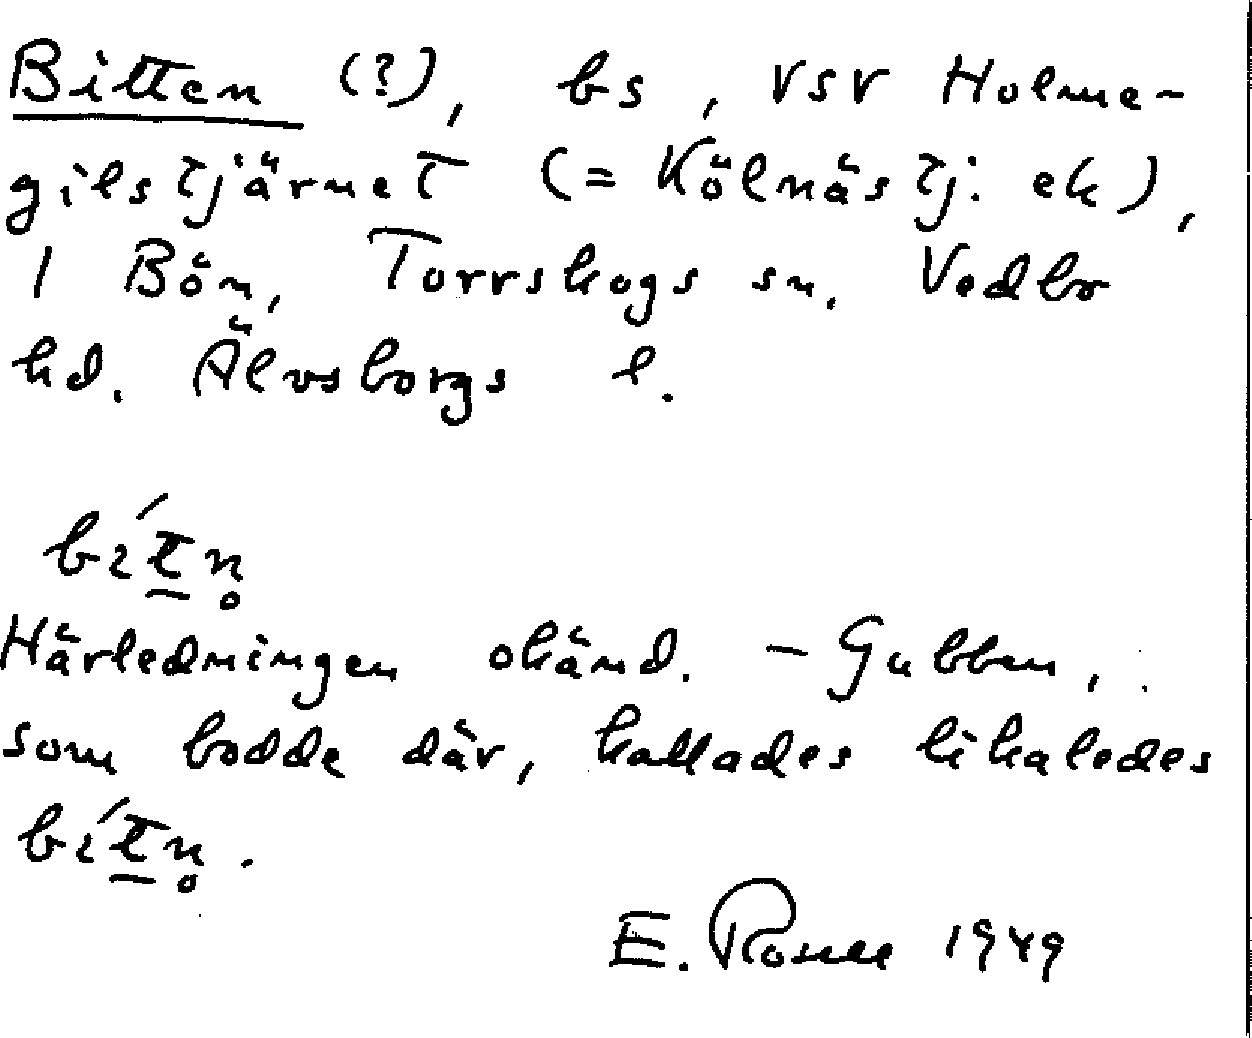 Bitten (?), bs, VSV Holme-
gilstjärnet (= Kölnästj. ek),
1 Bön, Torrskogs sn. Vedbo
hd. Älvsborgs l.
bít̲n̥
Härledningen okänd. – Gubben,
som bodde där, kallades likaledes
bít̲n̥.
E. 1949